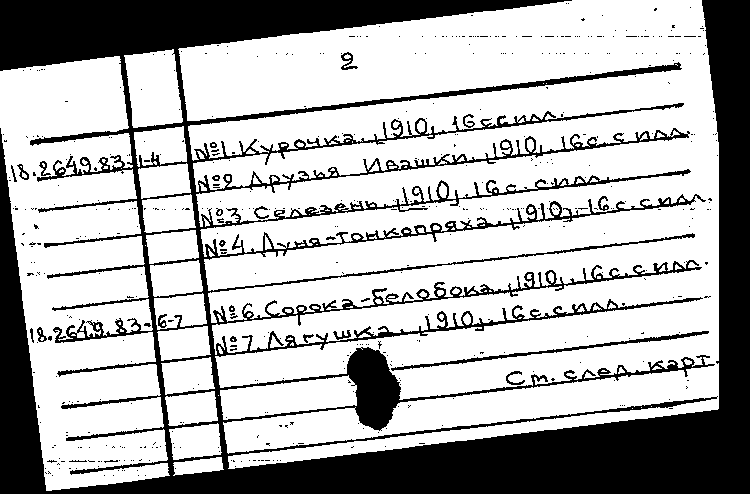 2
№1. Курочка. [1910]. 16 с с илл.
18.264.9.83-1-4 №2. Друзья Ивашки. [1910]. 16 с. с илл.
№3. Селезень. [1910]. 16 с. с илл.
№4. Дуня-тонкопряха. [1910]. 16 с. с илл.
18.264.9.83-6-7 №6. Сорока-белобока. [1910]. 16 с. с илл.
№7. Лягушка. [1910]. 16 с. с илл.
См. след. карт.